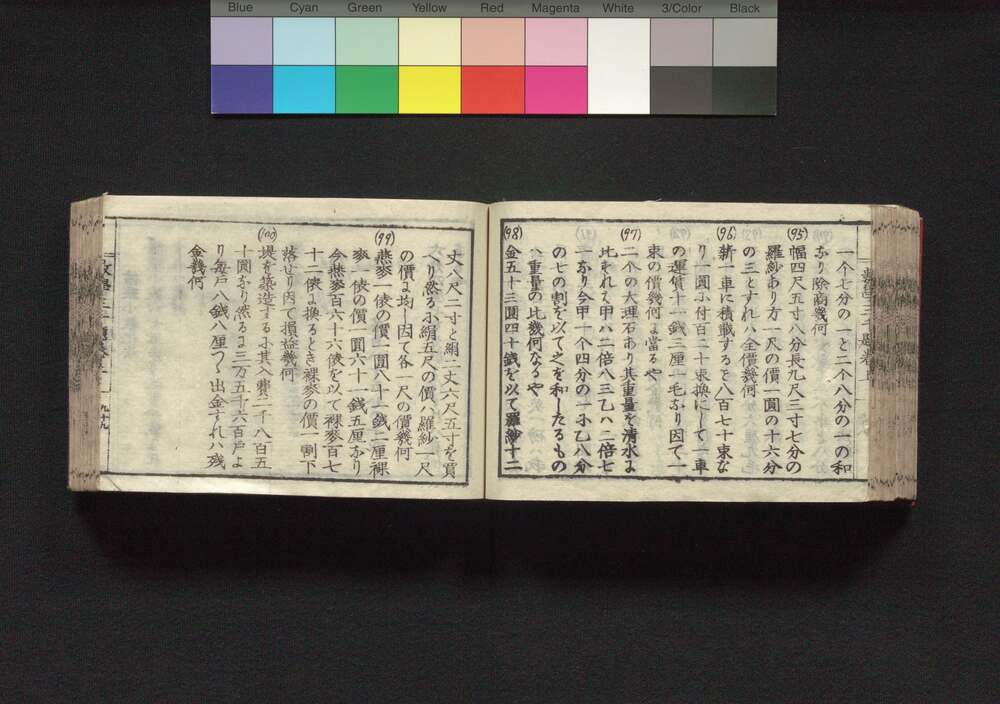 Blue Cyan Green Yellow Red Magenta White 3/Color Black
一个七分の一と二个八分の一の和
なり除商幾何
(95)
幅四尺五寸八分長九尺二寸七分の
羅紗あり方一尺の價一圓の十六分
の三とすれハ全價幾何
(96)
薪一車に積載すると八百七十束な
り一圓に付百二十束換にして一車
の運賃十一錢三厘一毛なり因て一
束の價幾何に當るや
(97)
二个の大理石あり其重量を清水に
比すれは甲ハ二倍八三乙ハ二倍七
二なり今甲一个四分の一に乙八分
の七の割を以て之を和したるもの
ハ重量の比幾何なるや
(98)
金五十三圓四十錢を以て羅紗十二
丈八尺二寸と絹二丈六尺五寸を買
へり然るに絹五尺の價ハ羅紗一尺
の價に均し因て各一尺の價幾何
(99)
燕麥一俵の價一圓八十一錢二厘裸
麥一俵の價一圓六十一錢五厘なり
今燕麥百六十六俵を以て裸麥百七
十二俵に換るとき裸麥の價一割下
落せり因て損益幾何
(100)
堤を築造するに其入費二千八百五
十圓なり然るに三万五千六百戸よ
り毎戸八錢八厘つゝ出金すれハ残
金幾何
九十九